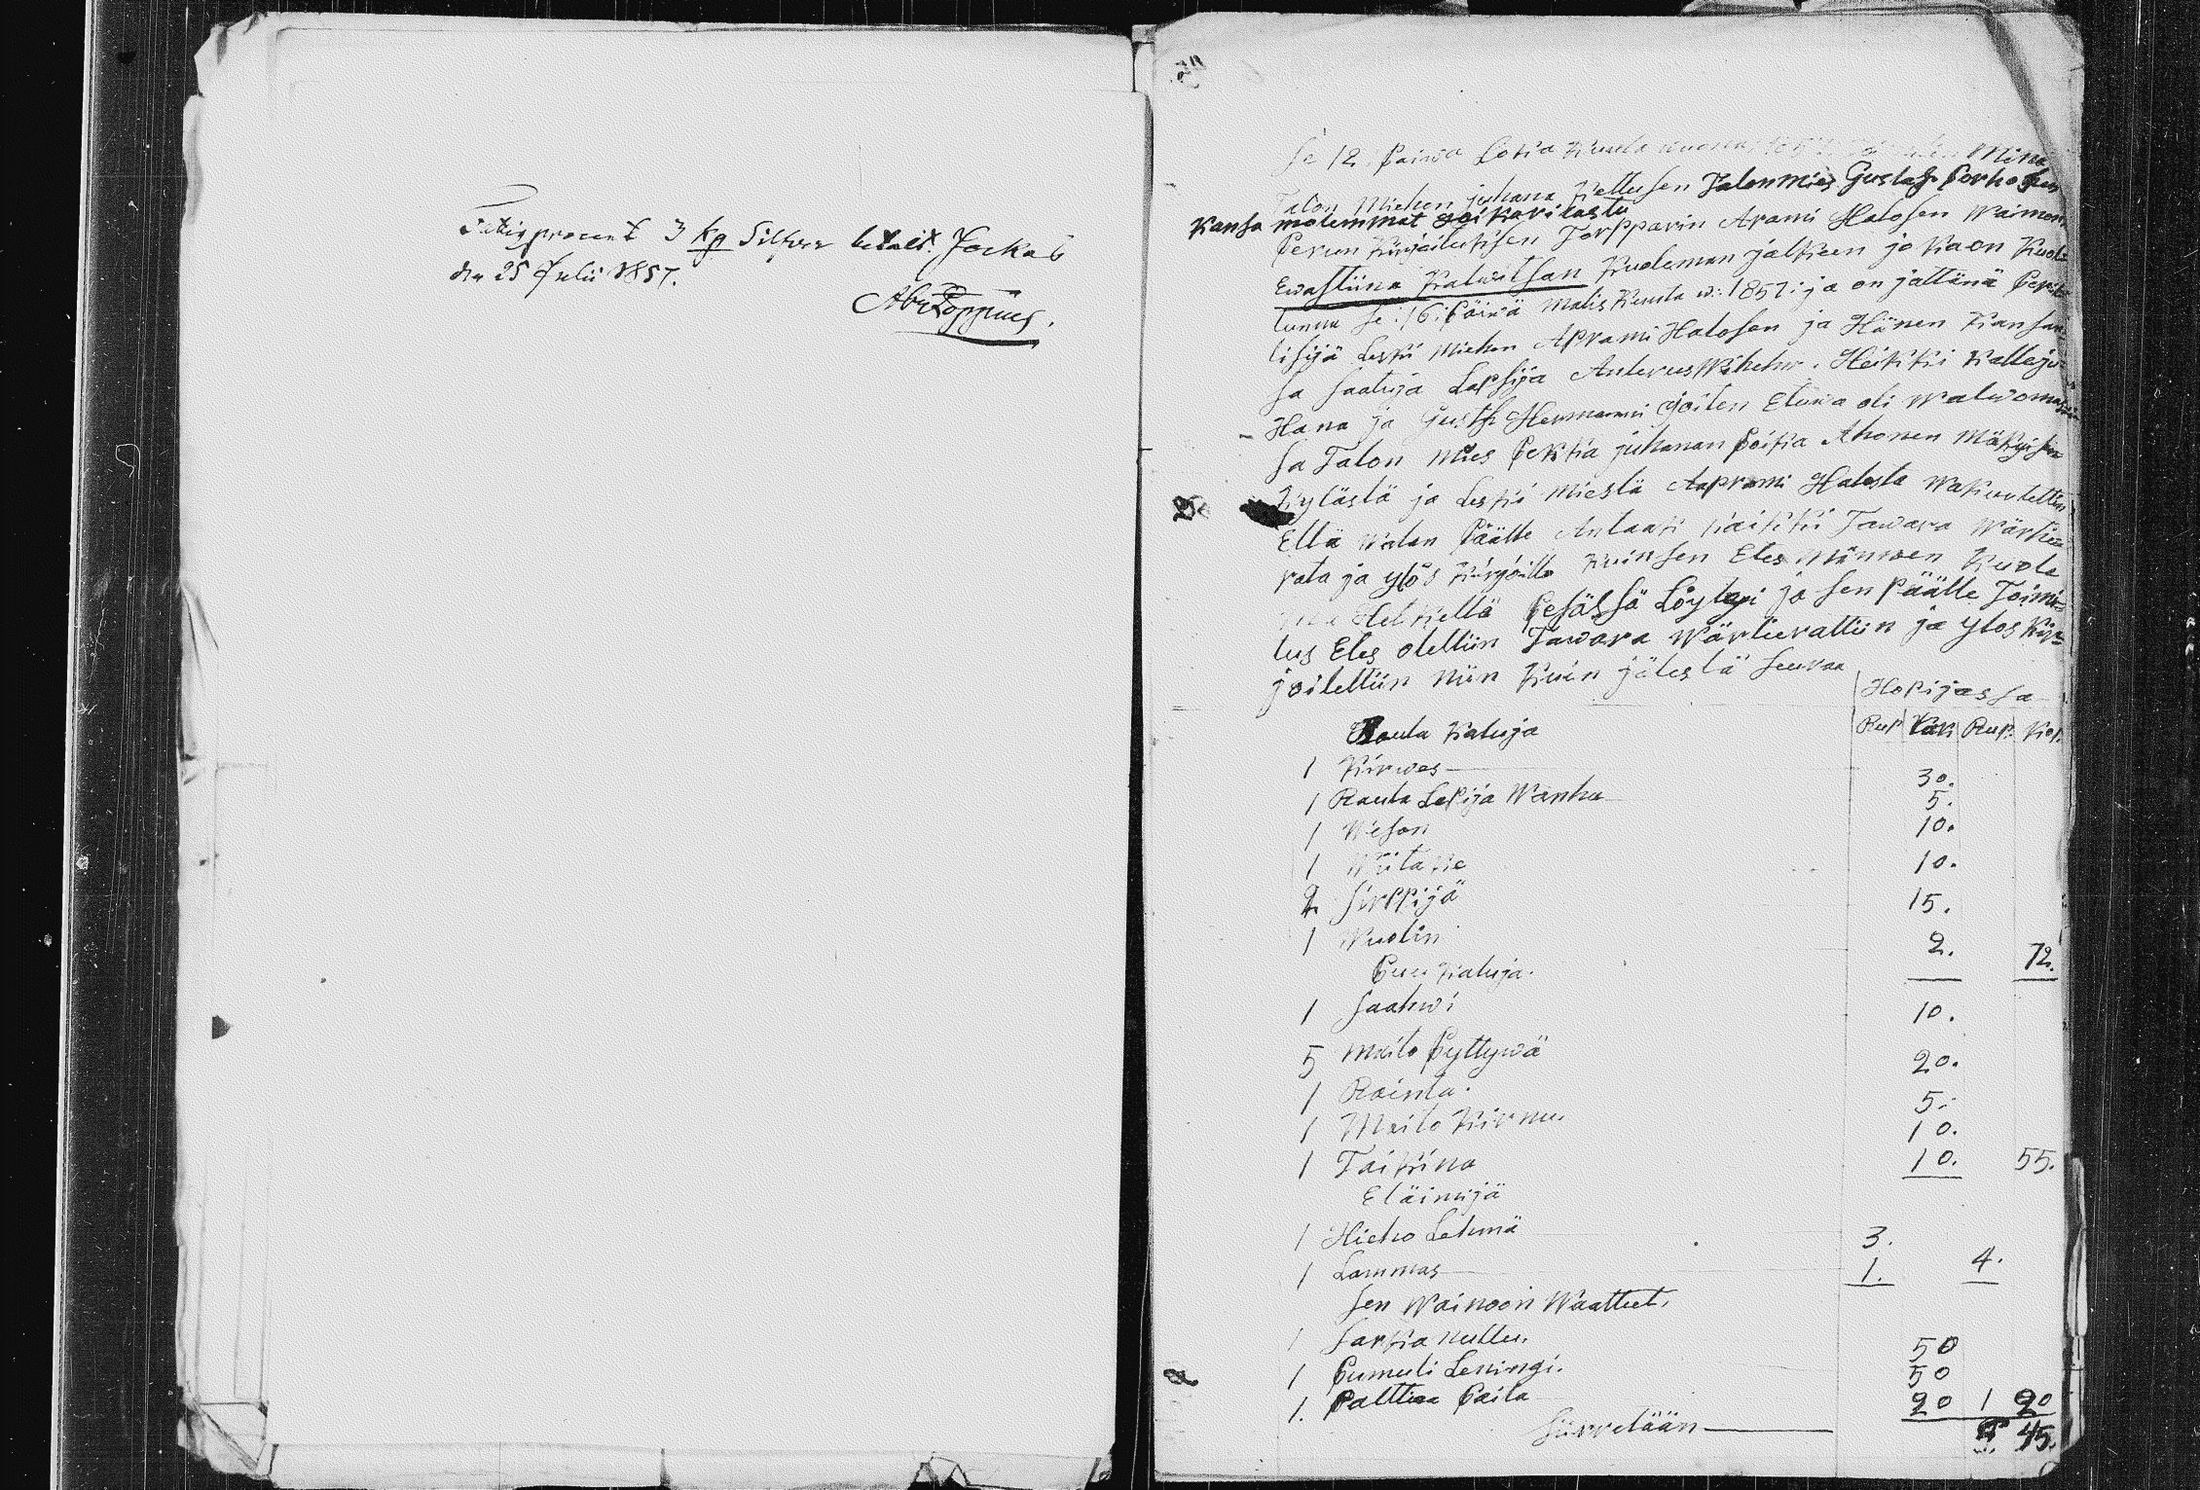 Fattigprocent 3 kp Silfver betalt. Jockas
den 25 Julii 1857.
Abr Poppius.
Se 12. Päiwä Loka Kuuta Minä
Talon Miehen juhana Talonmies Gustaf Porhosen
Kansa molemmat
Perun Kirjoituksen Torpparin Arami Halosen Waimon
Ewastiina Kuoleman jälkeen jo Kaon Kuol
lunna Se: 16: Päiwä Malis Kuuta w: 1857: ja on jättänä Peril
lisijä Leski Miehen Aprami Halosen ja Hänen Kansan
sa Saatuja Lapsija Anterus Wilhelm. Heikki Kalleju
Hana ja Gust: Hermanni joiten Etuwa oli Walwomassa
sa Talon Mies Pekka juhanan Poika Ahonen
Kylästä ja Leski Miestä Aaprami Halosta Wakuutettiin
Että Walan Päälle Antaak Kaikki Tawara Wärtiee
rata ja ylös Kirjoitta Kuin sen Etes Männen Kuole
Hetkellä Pesässä Löytyi ja sen Päälle Toimi=
tus Etes otettiin Tawara Wärtierattiin ja ylos Kir=
joitettiin niin Kuin jälestä Seuraa
Hopijassa
Rup Kop Rup. Kop.
Rauta Kaluja
1 Kirwes 30.
1 Rauta Lapija Wanha 5.
1 Weson 10.
1 Wiitake 10.
2 Sirppijä 15.
1 Wuolin 2. 72.
Puu Kaluja.
1 Saahwi 10.
5 Maito Pyttywä 20.
1 Rainta. 5.
1 Maito Kirnu. 10.
1 Taikina 10. 55.
Eläimijä
1 Hieho Lehmä 3.
1 Lammas 1. 4.
Sen Waimon Waatteet.
1 Sarka nuttu. 50
1 Pumuli Leningi. 50
1. Palttina Paita 20 1 20
Siirretään 45.